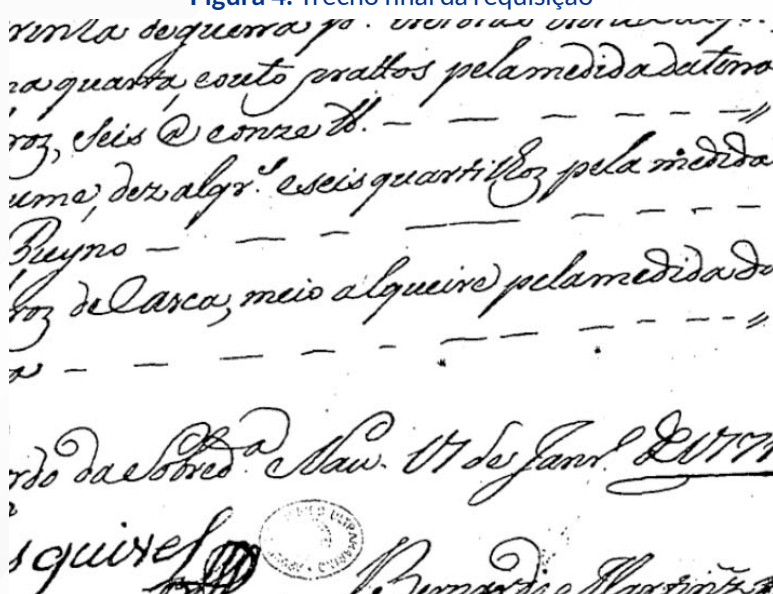 Figura 4. Trecho final da requisição
rinta de guerra pº.
na quarta, e outo prattos pela medida da terra
roz, seis @ e onze lb. — — — — — //
ume, dez alqr.ˢ e seis quartilhoz pela medida
Reyno — — — — — — —
roz de Casca, meio alqueire pela medida do
a — — — — — — — — //
rdo da Sobred.ª Nau. 17 de Janr.º de 177
squivel
Bernardo Martinz